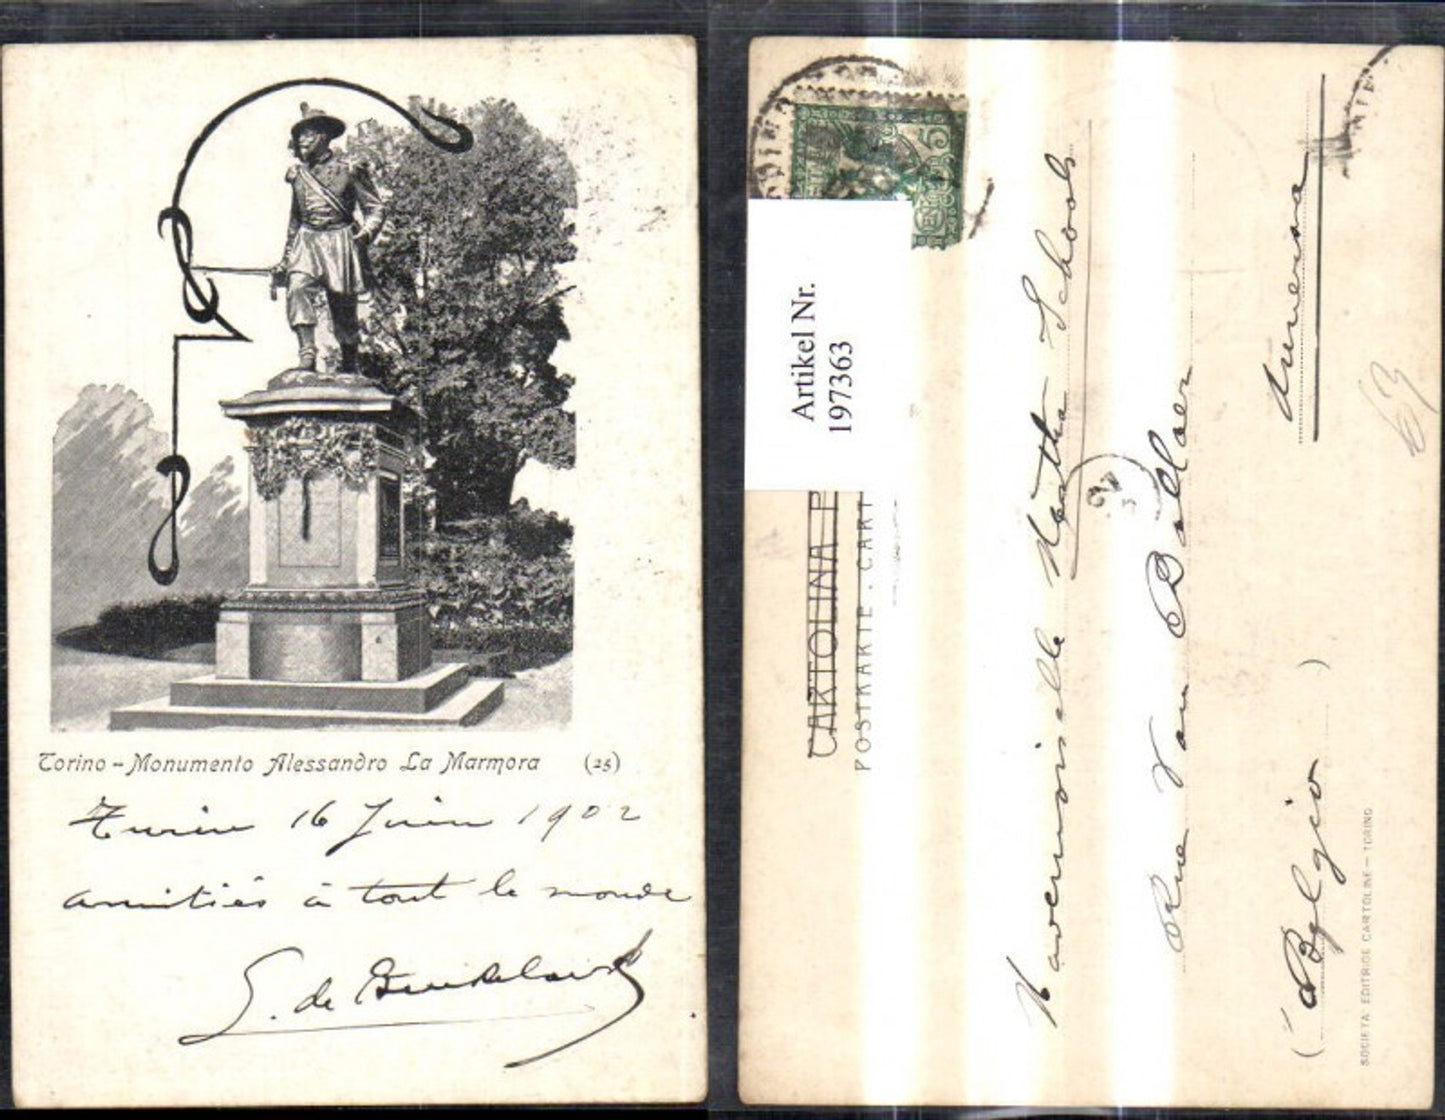 Torino - Monumento Alessandro La Marmora (25)
Turin 16 Juin 1902
amitiés à tout le monde
de
5
Artikel Nr.
197363
CARTOLINA P
POSTKARTE . CART
Mademoiselle Martha Schools
Rue Van
(Belgio)
SOCIETA EDITRICE CARTOLINE - TORINO
63